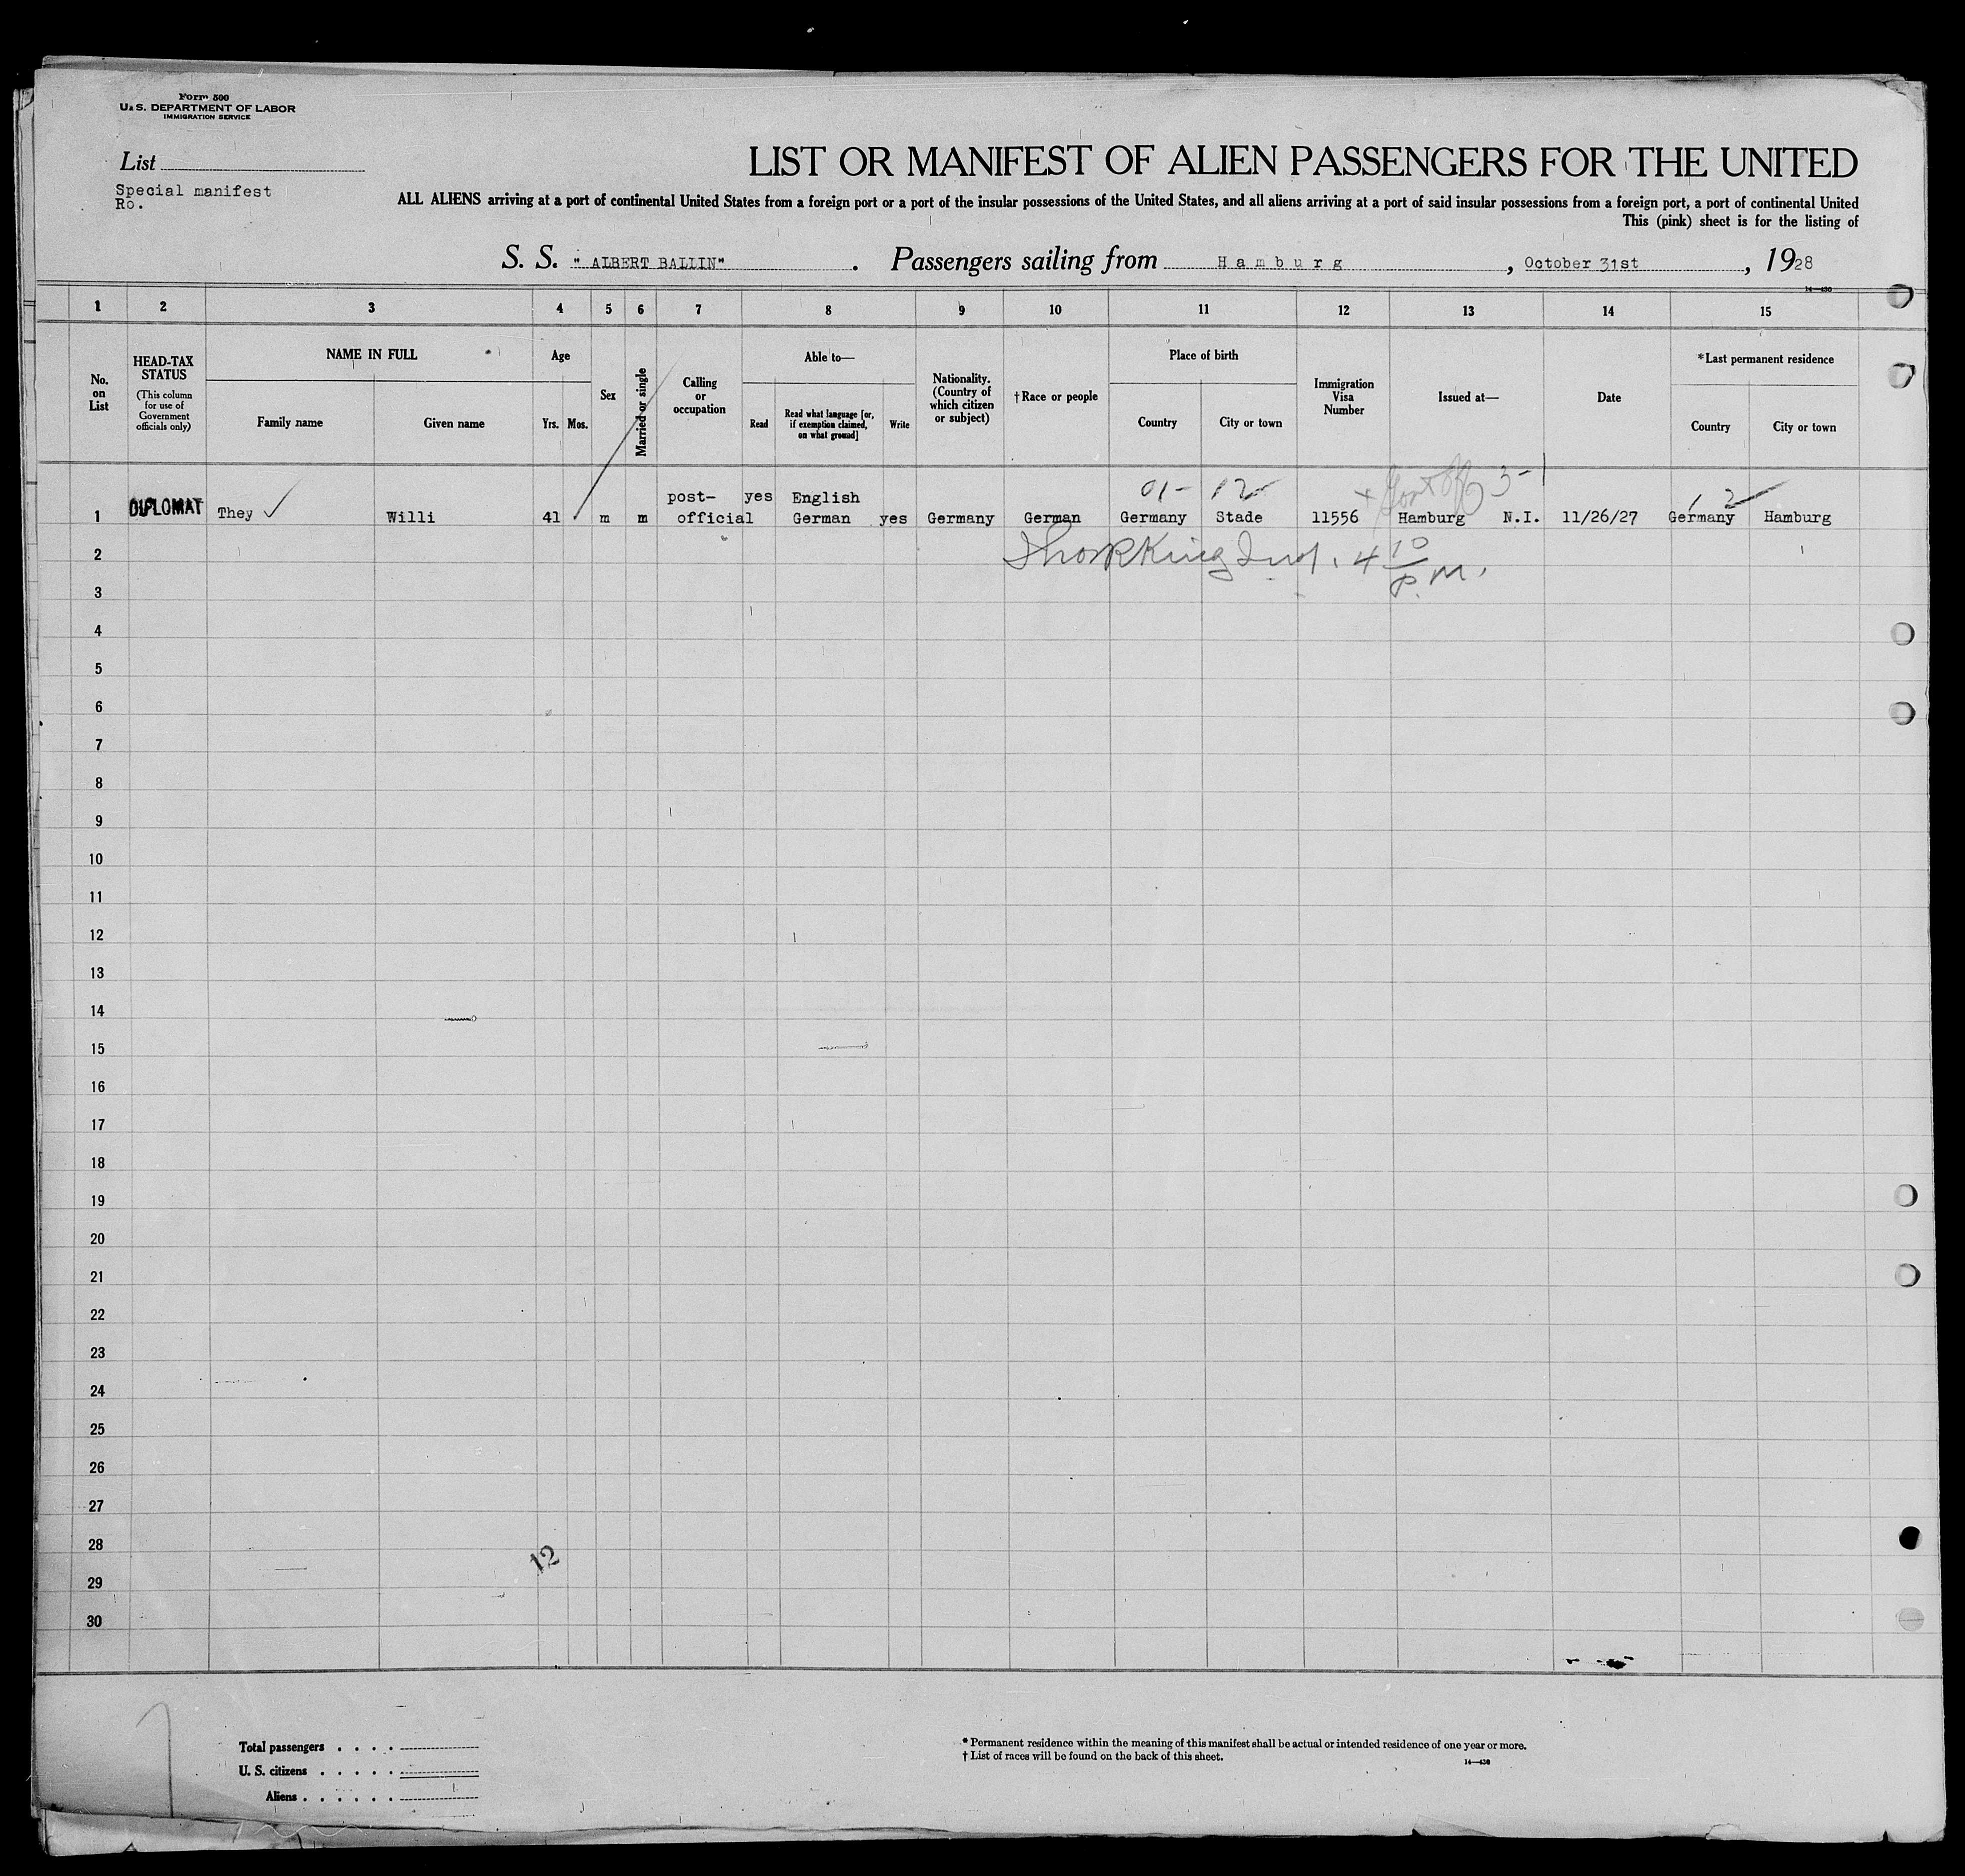 Form 500
U.S. DEPARTMENT OF LABOR
IMMIGRATION SERVICE
List
Special manifest
Ro.
LIST OR MANIFEST OF ALIEN PASSENGERS FOR THE UNITED
ALL ALIENS arriving at a port of continental United States from a foreign port or a port of the insular possessions of the United States, and all aliens arriving at a port of said insular possessions from a foreign port, a port of continental United
This (pink) sheet is for the listing of
S. S. "ALBERT BALLIN". Passengers sailing from Hamburg, October 31st, 1928
14-430
1 2 3 4 5 6 7 8 9 10 11 12 13 14 15
No. on List
HEAD-TAX STATUS
(This column for use of Government officials only)
NAME IN FULL
Family name Given name
Age
Yrs. Mos.
Sex
Married or single
Calling or occupation
Able to—
Read
Read what language [or, if exemption claimed, on what ground]
Write
Nationality. (Country of which citizen or subject)
†Race or people
Place of birth
Country City or town
Immigration Visa Number
Issued at—
Date
*Last permanent residence
Country City or town
01- 12 3- 1 2
1 DIPLOMAT They Willi 41 m m post-official yes English German yes Germany German Germany Stade 11556 Hamburg N.I. 11/26/27 Germany Hamburg
4 10 P.M.
2
3
4
5
6
7
8
9
10
11
12
13
14
15
16
17
18
19
20
21
22
23
24
25
26
27
28
12
29
30
Total passengers . . . .
U. S. citizens . . . . .
Aliens . . . . . .
* Permanent residence within the meaning of this manifest shall be actual or intended residence of one year or more.
† List of races will be found on the back of this sheet.
14-430